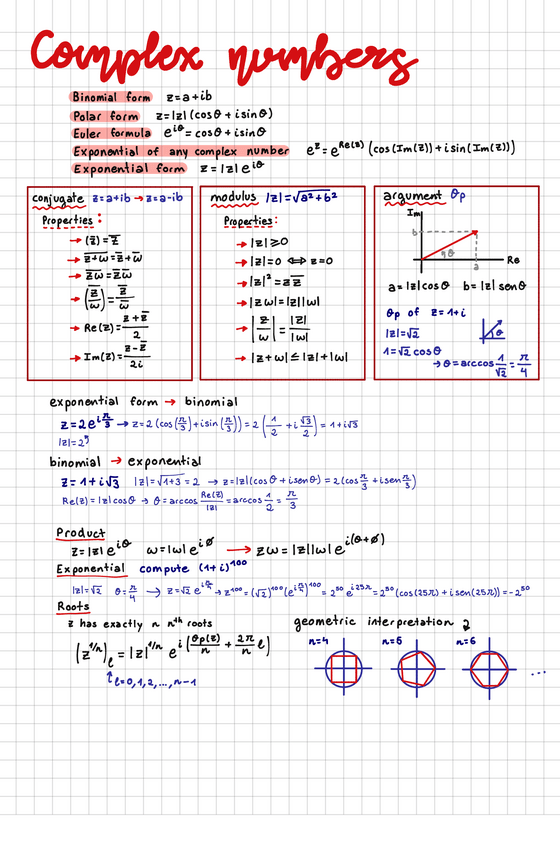 Complex numbers
Binomial form z=a+ib
Polar form z=|z|(cosθ+isinθ)
Euler formula e^iθ=cosθ+isinθ
Exponential of any complex number e^z=e^Re(z) (cos(Im(z))+isin(Im(z)))
Exponential form z=|z|e^iθ
conjugate z=a+ib → z=a-ib
Properties:
→ (z̅)=z̅
→ z̅+̅w̅=z̅+w̅
→ z̅w̅=z̅w̅
→ (z̅/w)=z̅/w̅
→ Re(z)=(z+z̅)/2
→ Im(z)=(z-z̅)/2i
modulus |z|=√a²+b²
Properties:
→ |z|≥0
→ |z|=0 ⟺ z=0
→ |z|²=zz̅
→ |zw|=|z||w|
→ |z/w|=|z|/|w|
→ |z+w|≤|z|+|w|
argument θp
Im
b
θ
a
Re
a=|z|cosθ b=|z|senθ
θp of z=1+i
|z|=√2
θ
1=√2 cosθ
→ θ=arccos 1/√2=π/4
exponential form → binomial
z=2e^iπ/3 → z=2(cos(π/3)+isin(π/3))=2(1/2+i√3/2)=1+i√3
|z|=2
binomial → exponential
z=1+i√3 |z|=√1+3=2 → z=|z|(cosθ+isenθ)=2(cos π/3+isen π/3)
Re(z)=|z|cosθ → θ=arccos Re(z)/|z|=arccos 1/2=π/3
Product
z=|z|e^iθ w=|w|e^iø → zw=|z||w|e^i(θ+ø)
Exponential compute (1+i)^100
|z|=√2 θ=π/4 → z=√2 e^iπ/4 → z^100=(√2)^100(e^iπ/4)^100=2^50 e^i25π=2^50(cos(25π)+isen(25π))=-2^50
Roots
z has exactly n nth roots
(z^1/n)ℓ=|z|^1/n e^i(θp(z)/n+2π/n ℓ)
ℓ=0,1,2,...,n-1
geometric interpretation
n=4 n=5 n=6
...